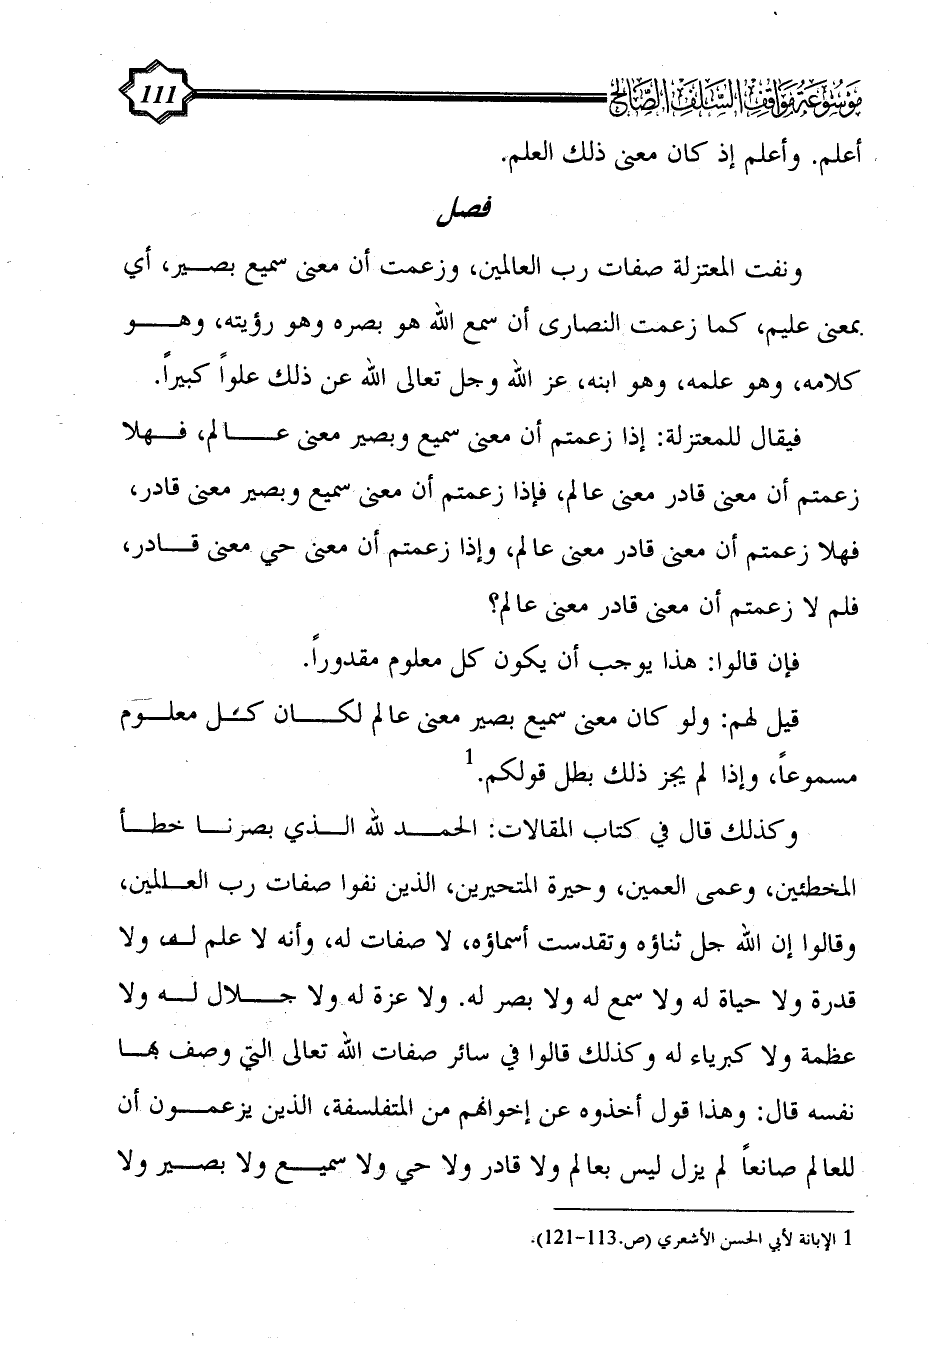 موسوعة مواقف السلف الصالح
111
أعلم. وأعلم إذ كان معنى ذلك العلم.
فصل
ونفت المعتزلة صفات رب العالمين، وزعمت أن معنى سميع بصير، أي
بمعنى عليم، كما زعمت النصارى أن سمع الله هو بصره وهو رؤيته، وهو
كلامه، وهو علمه، وهو ابنه، عز الله وجل تعالى الله عن ذلك علواً كبيراً.
فيقال للمعتزلة: إذا زعمتم أن معنى سميع وبصير معنى عالم، فهلا
زعمتم أن معنى قادر معنى عالم، فإذا زعمتم أن معنى سميع وبصير معنى قادر،
فهلا زعمتم أن معنى قادر معنى عالم، وإذا زعمتم أن معنى حي معنى قادر،
فلم لا زعمتم أن معنى قادر معنى عالم؟
فإن قالوا: هذا يوجب أن يكون كل معلوم مقدوراً.
قيل لهم: ولو كان معنى سميع بصير معنى عالم لكان كل معلوم
مسموعاً، وإذا لم يجز ذلك بطل قولكم.1
وكذلك قال في كتاب المقالات: الحمد لله الذي بصرنا خطأ
المخطئين، وعمى العمين، وحيرة المتحيرين، الذين نفوا صفات رب العالمين،
وقالوا إن الله جل ثناؤه وتقدست أسماؤه، لا صفات له، وأنه لا علم له، ولا
قدرة ولا حياة له ولا سمع له ولا بصر له. ولا عزة له ولا جلال له ولا
عظمة ولا كبرياء له وكذلك قالوا في سائر صفات الله تعالى التي وصف بها
نفسه قال: وهذا قول أخذوه عن إخوانهم من المتفلسفة، الذين يزعمون أن
للعالم صانعاً لم يزل ليس بعالم ولا قادر ولا حي ولا سميع ولا بصير ولا
1 الإبانة لأبي الحسن الأشعري (ص.113-121).